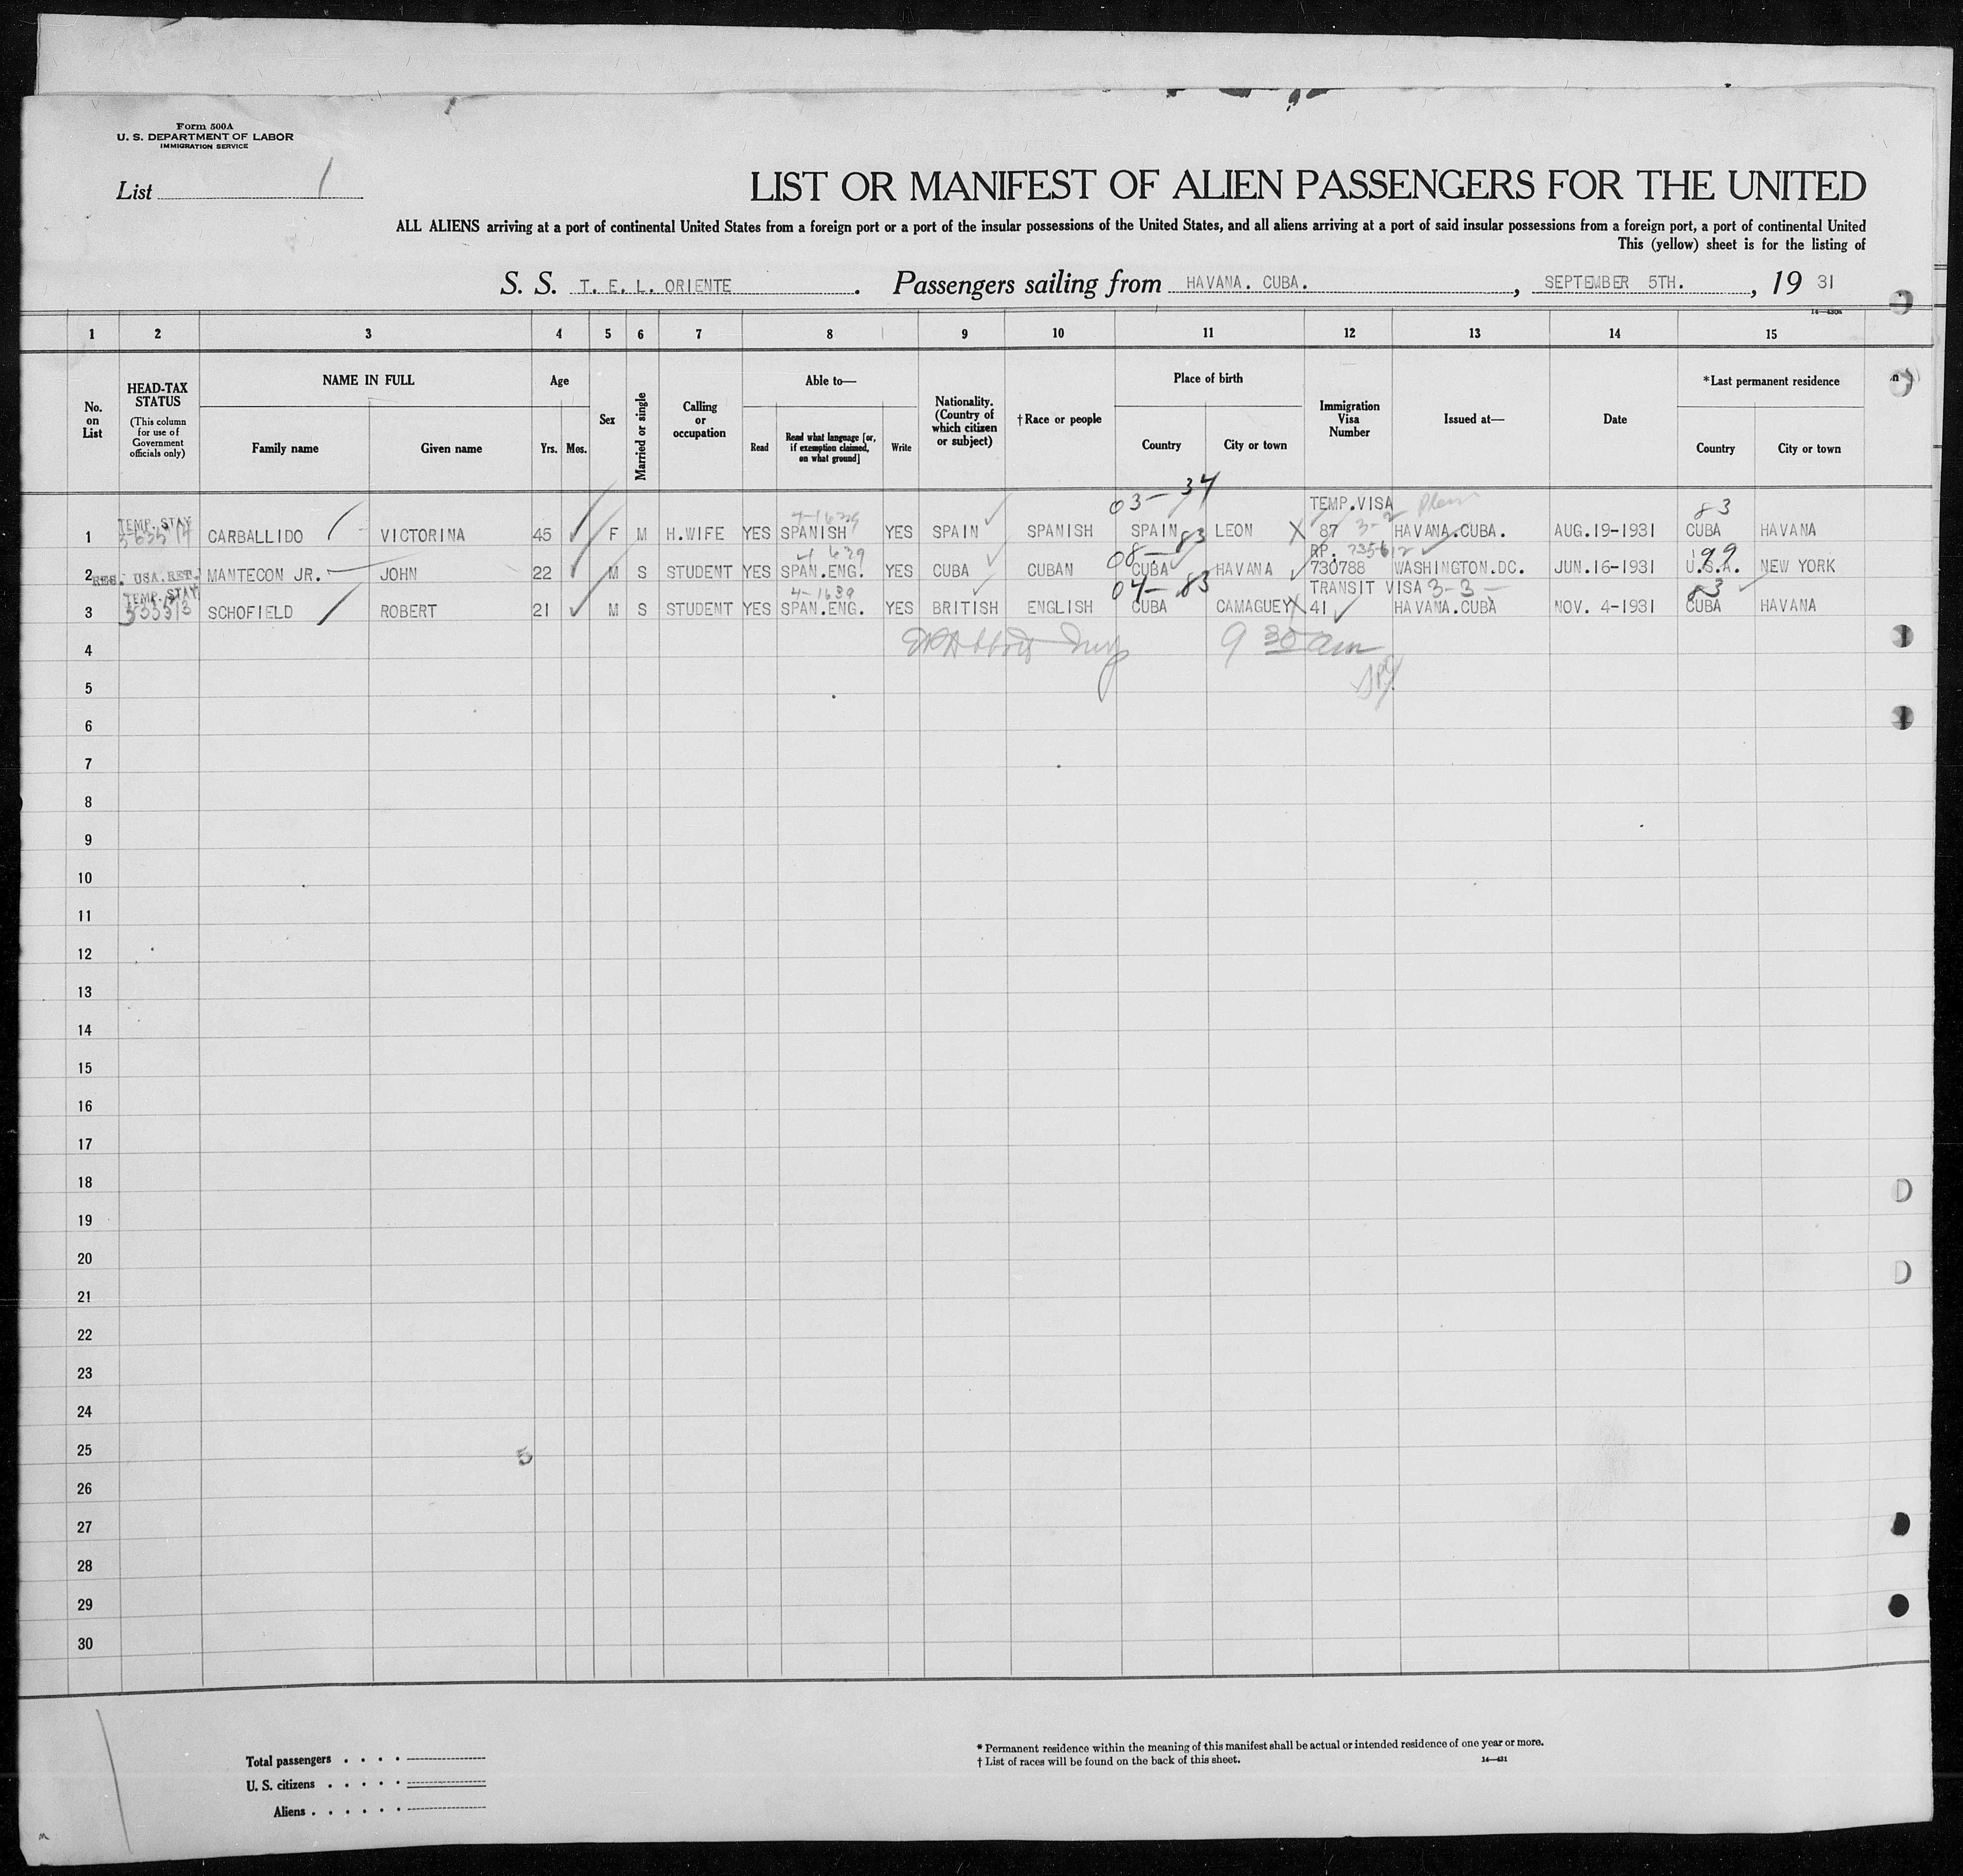 Form 500A
U. S. DEPARTMENT OF LABOR
IMMIGRATION SERVICE
List 1
LIST OR MANIFEST OF ALIEN PASSENGERS FOR THE UNITED
ALL ALIENS arriving at a port of continental United States from a foreign port or a port of the insular possessions of the United States, and all aliens arriving at a port of said insular possessions from a foreign port, a port of continental United
This (yellow) sheet is for the listing of
S. S. T. E. L. ORIENTE. Passengers sailing from HAVANA. CUBA., SEPTEMBER 5TH., 19 31
1 2 3 4 5 6 7 8 9 10 11 12 13 14 15
No. on List
HEAD-TAX STATUS
(This column for use of Government officials only)
NAME IN FULL
Family name Given name
Age
Yrs. Mos.
Sex
Married or single
Calling or occupation
Able to—
Read
Read what language [or, if exemption claimed, on what ground]
Write
Nationality. (Country of which citizen or subject)
†Race or people
Place of birth
Country City or town
Immigration Visa Number
Issued at—
Date
*Last permanent residence
Country City or town
03- 34
TEMP.VISA
83
TEMP. STAY
1 CARBALLIDO VICTORINA 45 F M H.WIFE YES SPANISH YES SPAIN SPANISH SPAIN LEON X 87 3-2 HAVANA.CUBA. AUG.19-1931 CUBA HAVANA
08- 83 RP. 99
2 RES. USA.RET. MANTECON JR. JOHN 22 M S STUDENT YES SPAN.ENG. YES CUBA CUBAN CUBA HAVANA 730788 WASHINGTON.DC. JUN.16-1931 U.S.A. NEW YORK
TEMP. STAY 4-1639 04- 83 TRANSIT VISA 3-3- 83
3 SCHOFIELD ROBERT 21 M S STUDENT YES SPAN.ENG. YES BRITISH ENGLISH CUBA CAMAGUEY X 41 HAVANA.CUBA NOV. 4-1931 CUBA HAVANA
4 9 30 am
5
6
7
8
9
10
11
12
13
14
15
16
17
18
19
20
21
22
23
24
25 5
26
27
28
29
30
Total passengers . . . .
U. S. citizens . . . . .
Aliens . . . . . .
* Permanent residence within the meaning of this manifest shall be actual or intended residence of one year or more.
† List of races will be found on the back of this sheet. 14—431